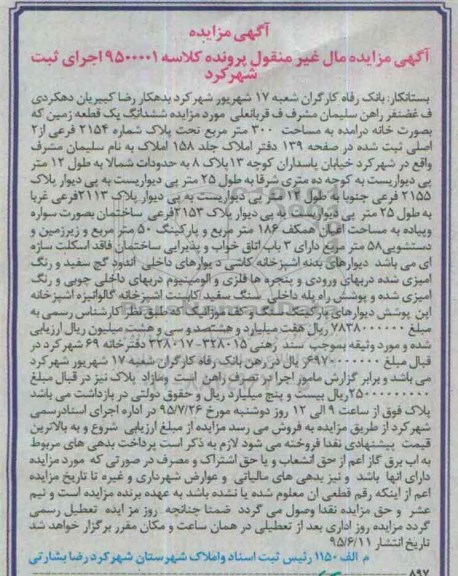 آگهی مزایده
آگهی مزایده مال غیر منقول پرونده کلاسه ۹۵۰۰۰۰۱ اجرای ثبت
شهرکرد
بستانکار: بانک رفاه کارگران شعبه ۱۷ شهریور شهرکرد بدهکار رضا کبیریان دهکردی
ف غضنفر راهن سلیمان مشرف ف قربانعلی مورد مزایده ششدانگ یک قطعه زمین که
بصورت خانه درامده به مساحت ۳۰۰ متر مربع تحت پلاک شماره ۲۱۵۴ فرعی از ۲
اصلی ثبت شده در صفحه ۱۳۹ دفتر املاک جلد ۱۵۸ املاک به نام سلیمان مشرف
واقع در شهرکرد خیابان پاسداران کوچه ۱۳ پلاک ۸ به حدودات شمالا به طول ۱۲ متر
پی دیواریست به کوچه ده متری شرقا به طول ۲۵ متر پی دیواریست به پی دیوار پلاک
۲۱۵۵ فرعی جنوبا به طول ۱۲ متر پی دیواریست به پی دیوار پلاک ۲۱۱۳ فرعی غربا
به طول ۲۵ متر پی دیواریست به پی دیوار پلاک ۲۱۵۳ فرعی ساختمان بصورت سواره
وپیاده به مساحت اعیان همکف ۱۸۶ متر مربع و پارکینگ ۵۰ متر مربع و زیرزمین و
دستشویی ۵۸ متر مربع دارای ۳ باب اتاق خواب و پذیرایی ساختمان فاقد اسکلت سازه
ای می باشد دیوارهای بدنه اشپزخانه کاشی د یوارهای داخلی اندود گچ سفید و رنگ
امیزی شده دربهای ورودی و پنجره ها فلزی و الومینیوم دربهای داخلی چوبی و رنگ
امیزی شده و پوشش راه پله داخلی سنگ سفید کابینت اشپزخانه گالوانیزه اشپزخانه
این پوشش دیوارهای پارکینگ سنگ و کف موزائیک که طبق نظر کارشناس رسمی به
مبلغ ۷۸۳۸۰۰۰۰۰۰ ریال هفت میلیارد و هشتصد و سی و هشت میلیون ریال ارزیابی
شده و مورد وثیقه بموجب سند رهنی ۳۲۸۰۱۵-۳۲۸۰۱۷ دفترخانه ۶۹ شهرکرد در
قبال مبلغ ریال در رهن بانک رفاه کارگران شعبه ۱۷ شهریور شهرکرد
می باشد و برابر گزارش مامور اجرا در تصرف راهن است ومازاد پلاک نیز در قبال مبلغ
۲۵۰۰۰۰۰۰۰۰۰ ریال بیست و پنج میلیارد ریال و حقوق دولتی در بازداشت می باشد
پلاک فوق از ساعت ۹ الی ۱۲ روز دوشنبه مورخ ۹۵/۷/۲۶ در اداره اجرای اسناد رسمی
شهرکرد از طریق مزایده به فروش می رسد مزایده از مبلغ ارزیابی شروع و به بالاترین
قیمت پیشنهادی نقدا فروخته می شود لازم به ذکر است پرداخت بدهی های مربوط
به اب برق گاز اعم از حق انشعاب و یا حق اشتراک و مصرف در صورتی که مورد مزایده
دارای انها باشد و نیز بدهی های مالیاتی و عوارض شهرداری و غیره تا تاریخ مزایده
اعم از اینکه رقم قطعی ان معلوم شده یا نشده باشد به عهده برنده مزایده است و نیم
عشر و حق مزایده نقدا وصول می گردد ضمنا چنانچه روز مز ایده تعطیل رسمی
گردد مزایده روز اداری بعد از تعطیلی در همان ساعت و مکان مقرر برگزار خواهد شد
تاریخ انتشار ۹۵/۶/۱۱
م الف ۱۱۵۰ رئیس ثبت اسناد واملاک شهرستان شهرکرد رضا بشارتی
۸۹۷